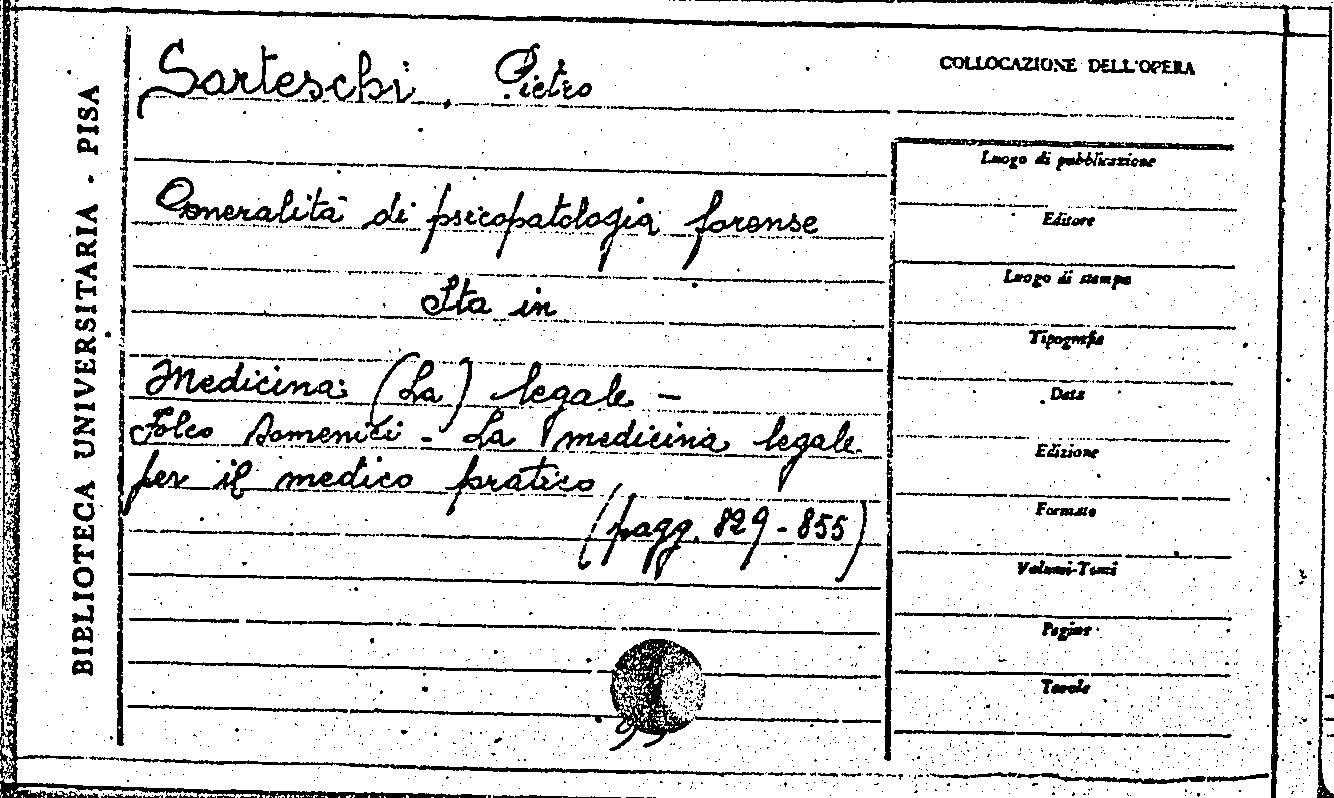 BIBLIOTECA UNIVERSITARIA - PISA
Sarteschi, Pietro
Generalità di psicopatologia forense
Sta in
Medicina (La) legale -
Folco Domenici - La medicina legale
per il medico pratico
(pagg. 829 - 855)
COLLOCAZIONE DELL'OPERA
Luogo di pubblicazione
Editore
Luogo di stampa
Tipografia
Data
Edizione
Formato
Volumi-Tomi
Pagine
Tavole